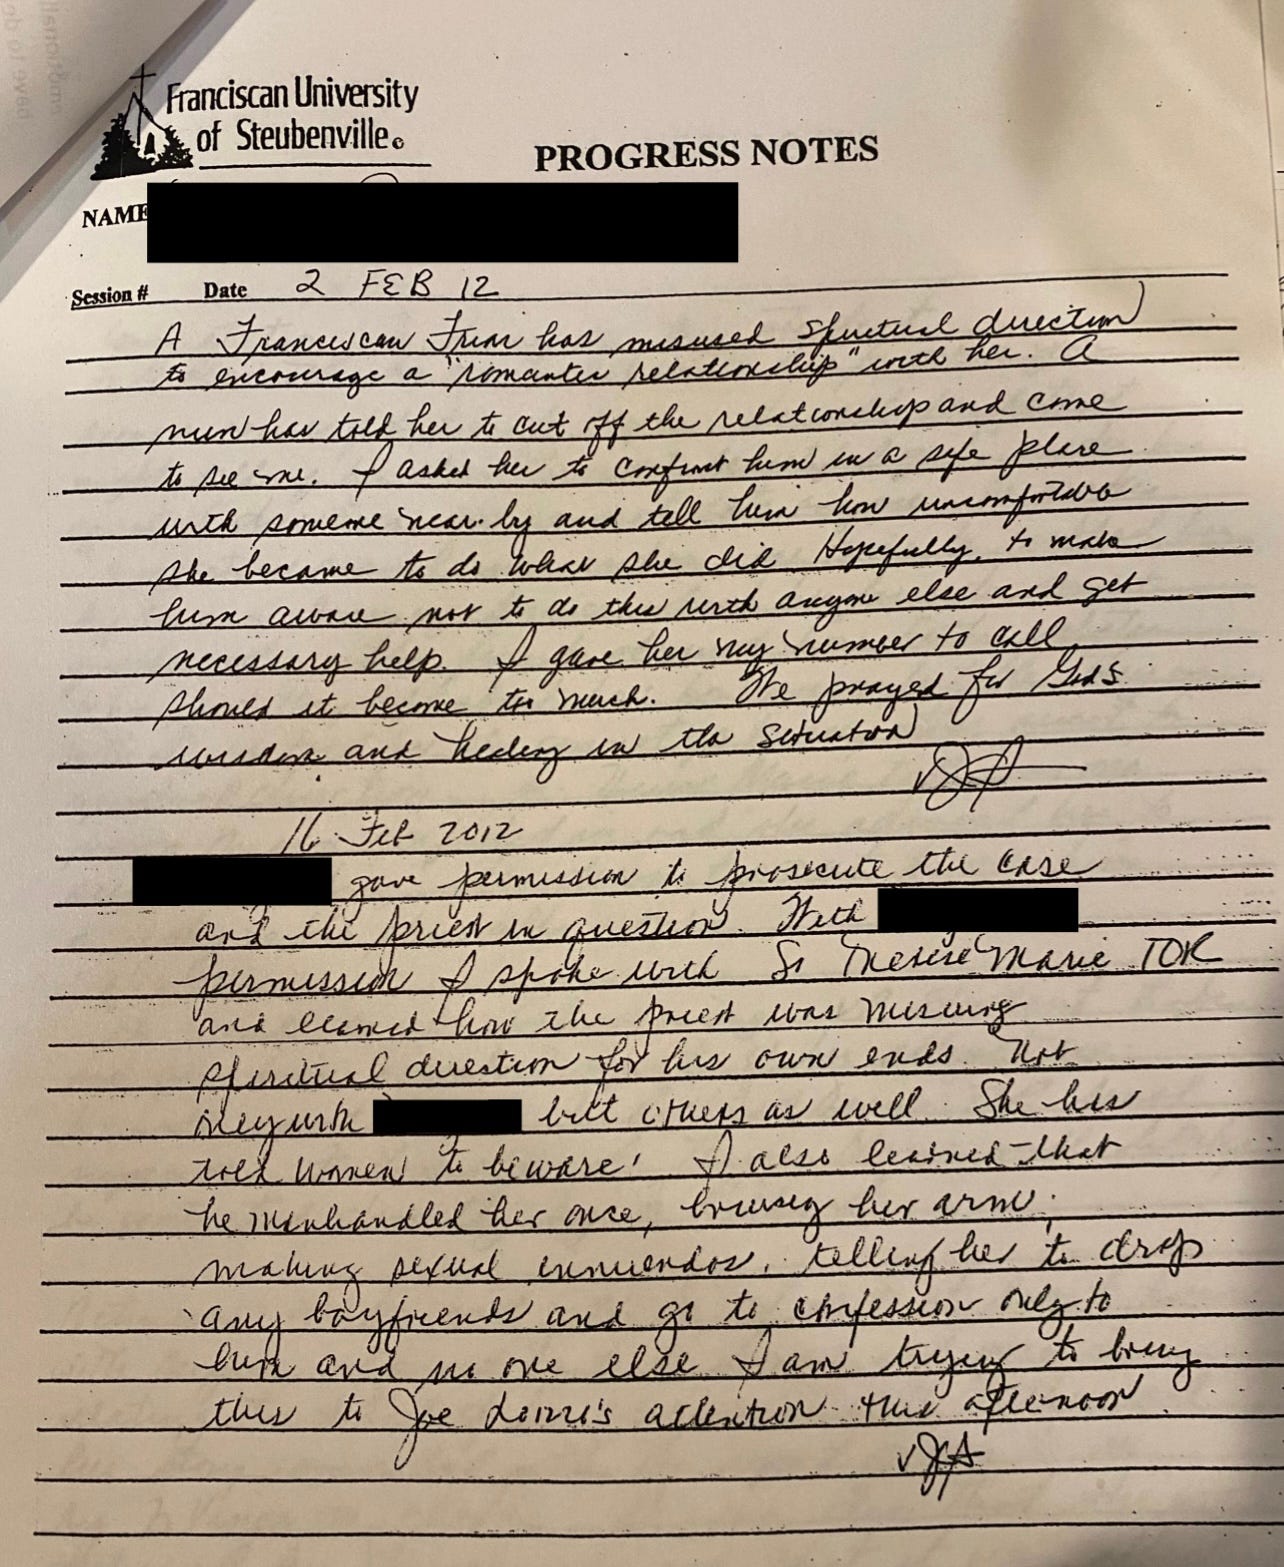 Franciscan University
of Steubenville
PROGRESS NOTES
NAME
Session # Date 2 FEB 12
A Franciscan Friar has misused spiritual direction
to encourage a "romantic relationship" with her. A
nun has told her to cut off the relationship and come
to see me. I asked her to confront him in a safe place
with someone near by and tell him how uncomfortable
she became to do what she did Hopefully, to make
him aware not to do this with anyone else and get
necessary help. I gave her my number to call
should it become too much. We prayed for God's
wisdom and healing in the situation
16 Feb 2012
gave permission to prosecute the case
and the priest in question. With
permission I spoke with Sr Therese Marie TOR
and learned how the priest was misusing
spiritual direction for his own ends. Not
only with but others as well. She has
told women to beware! I also learned that
he manhandled her once, bruising her arm;
making sexual innuendos, telling her to drop
any boyfriends and go to confession only to
him and no one else I am trying to bring
this to Joe attention this afternoon.